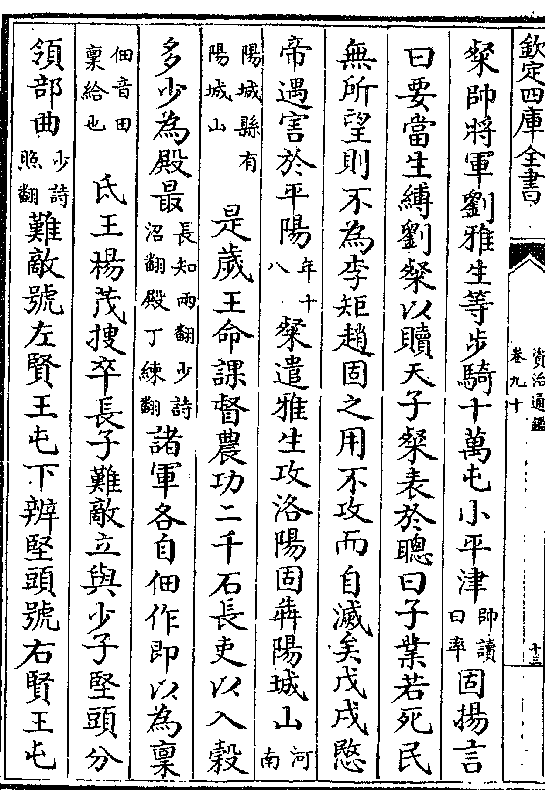 欽定四庫全書
資治通鑑
卷九十
十三
粲帥將軍劉雅生等步騎十萬屯小平津帥讀曰率固揚言
曰要當生縛劉粲以贖天子粲表於聰曰子業若死民
無所望則不為李矩趙固之用不攻而自滅矣戊戌愍
帝遇害於平陽年十八粲遣雅生攻洛陽固犇陽城山河南
陽城縣有陽城山是歲王命課督農功二千石長吏以入穀
多少為殿最長知兩翻少詩沼翻殿丁練翻諸軍各自佃作即以為稟
佃音田稟給也氐王楊茂搜卒長子難敵立與少子堅頭分
領部曲少詩照翻難敵號左賢王屯下辨堅頭號右賢王屯